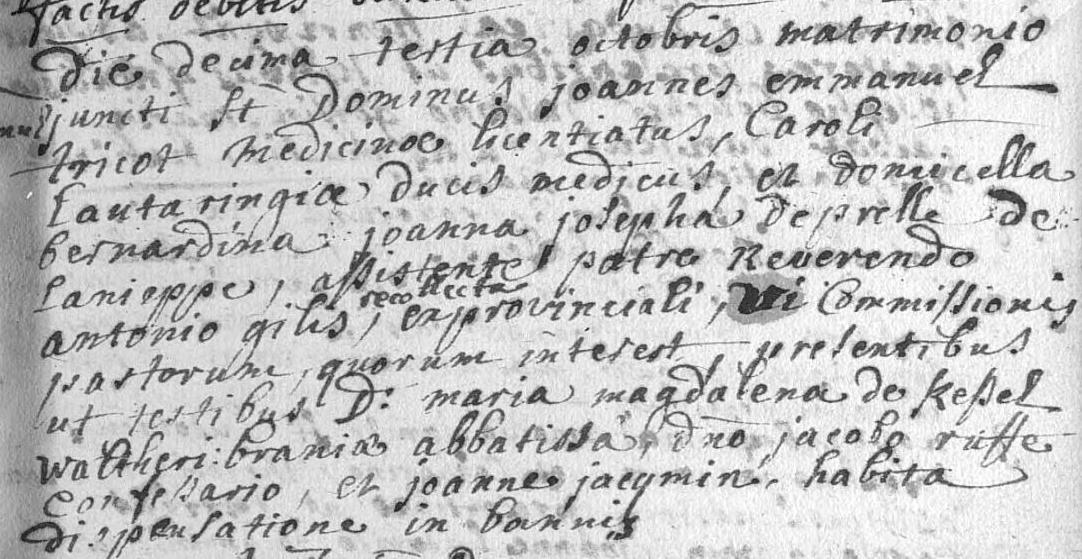 factis debitis
die decima tertia octobris matrimonio
juncti st Dominus joannes emmanuel
tricot medicinæ licentiatus, Caroli
Lautaringiæ ducis medicus, et domicella
bernardina joanna josepha deprelle de
Lanieppe, assistente patre Reverendo
antonio gilis, recollecta exprovinciali, vi Commissionis
pastorum, quorum interest, presentibus
ut testibus D: maria magdalena de Kessel
waltheri: braniæ abbatissa, dno jacobo ruffe
Confessario, et joanne jacqmin, habita
dispensatione in bannis